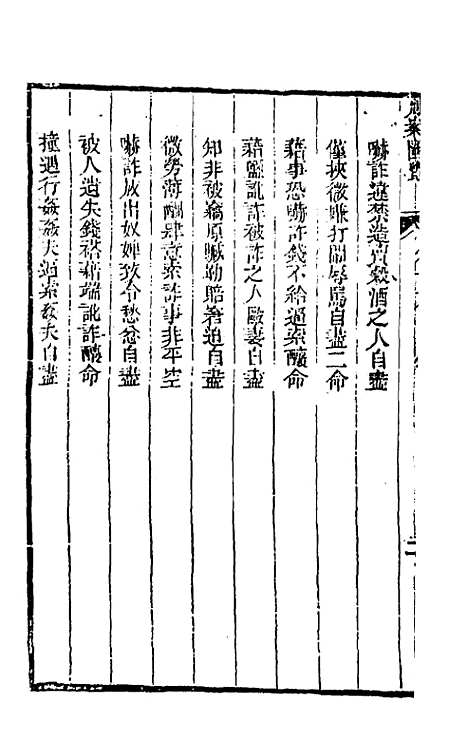 嚇詐違禁造賣穀酒之人自盡
僅挾微嫌打鬧辱罵自盡二命
藉事恐嚇詐錢不給逼索釀命
藉端訛詐被詐之人毆妻自盡
知非被竊原贓勒賠箸逼自盡
微勞薄酬肆意索詐事非平空
嚇詐放出奴婢致令愁忿自盡
被人遺失錢褡藉端訛詐釀命
撞遇行姦姦夫逼索姦夫自盡